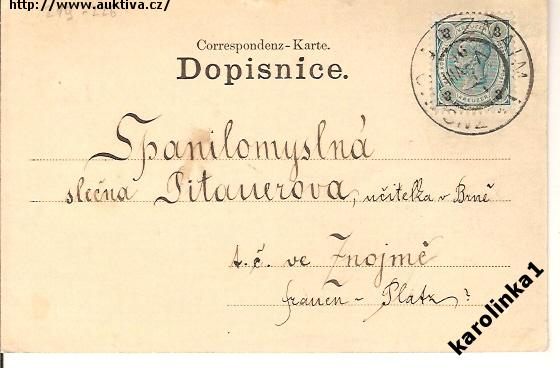 http://www.auktiva.cz/
Correspondenz-Karte.
Dopisnice.
3 3
KREUZER
3 3
ZNAIM
ZNOJMO
Spanilomyslná
slečna Pitauerova, učitelka v Brně
t.č. ve Znojmě
frauen - Platz?
karolinka1